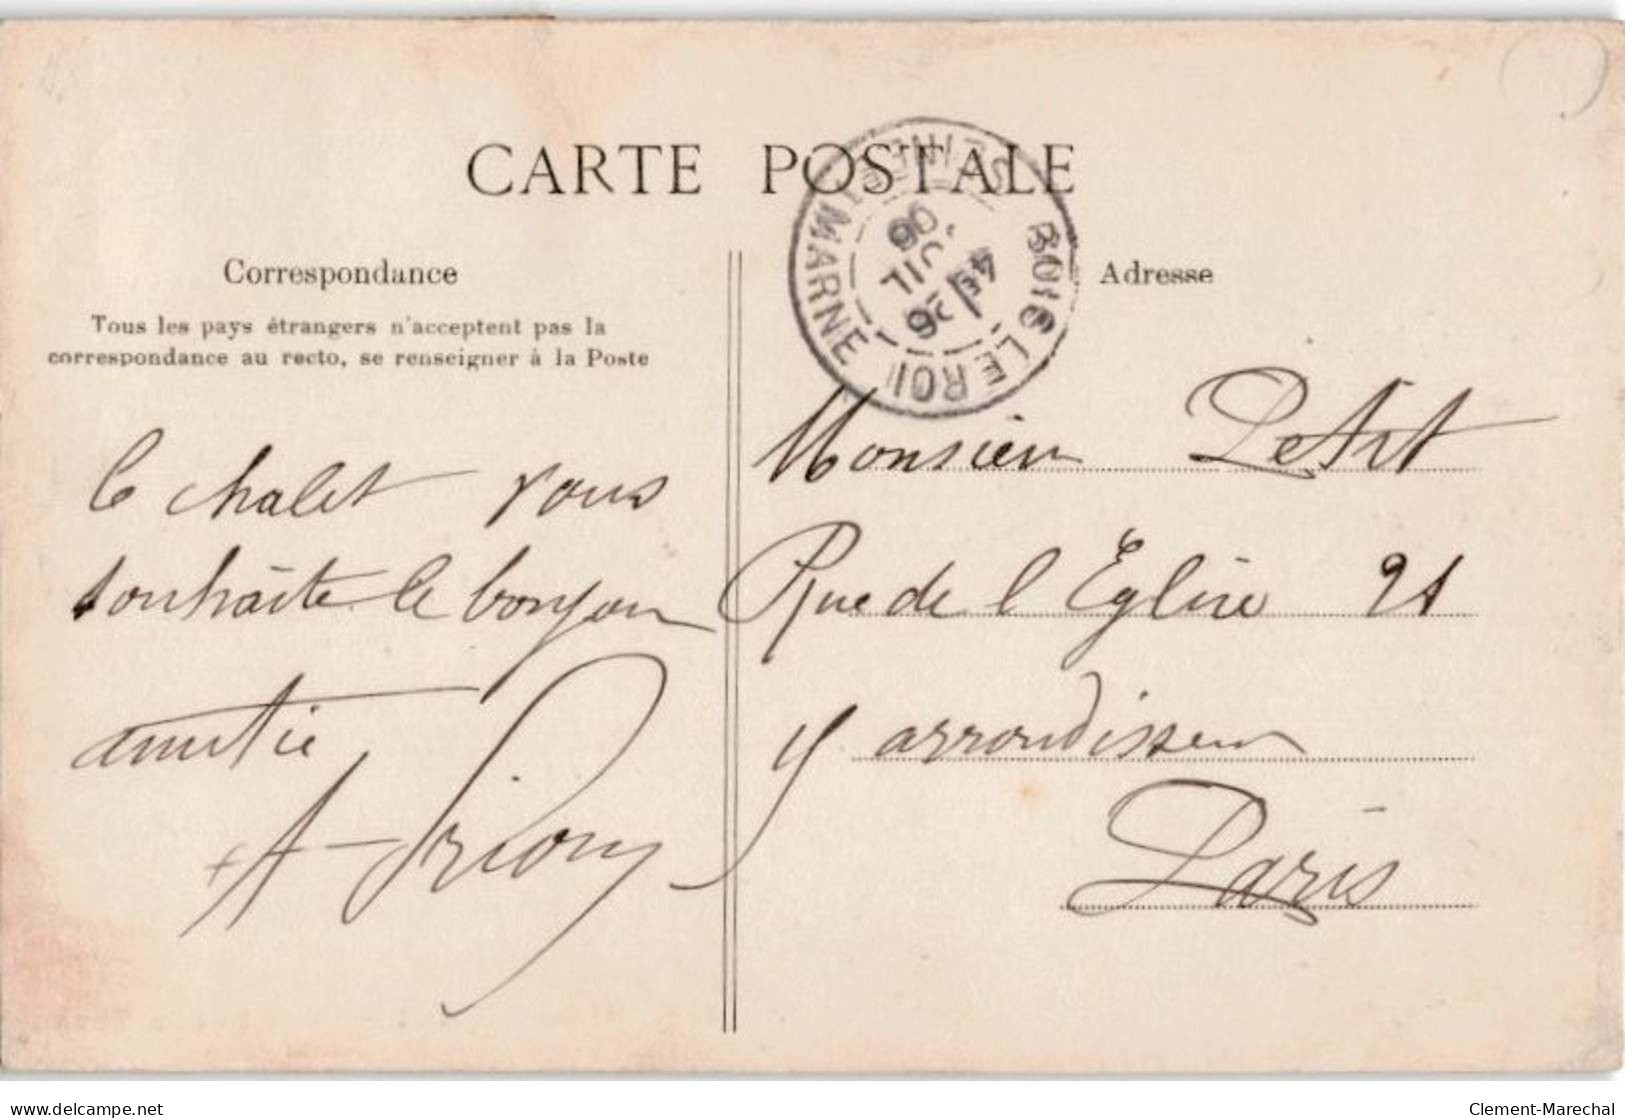 CARTE POSTALE
BOIS LE ROI
SEINE ET MARNE
26
JUIL
06
Correspondance
Tous les pays étrangers n'acceptent pas la
correspondance au recto, se renseigner à la Poste
le chalet vous
souhaite le bonjour
amitié
Adresse
Monsieur
Rue de l Eglise 21
arrondissem
Paris
delcampe.net
Clement-Marechal